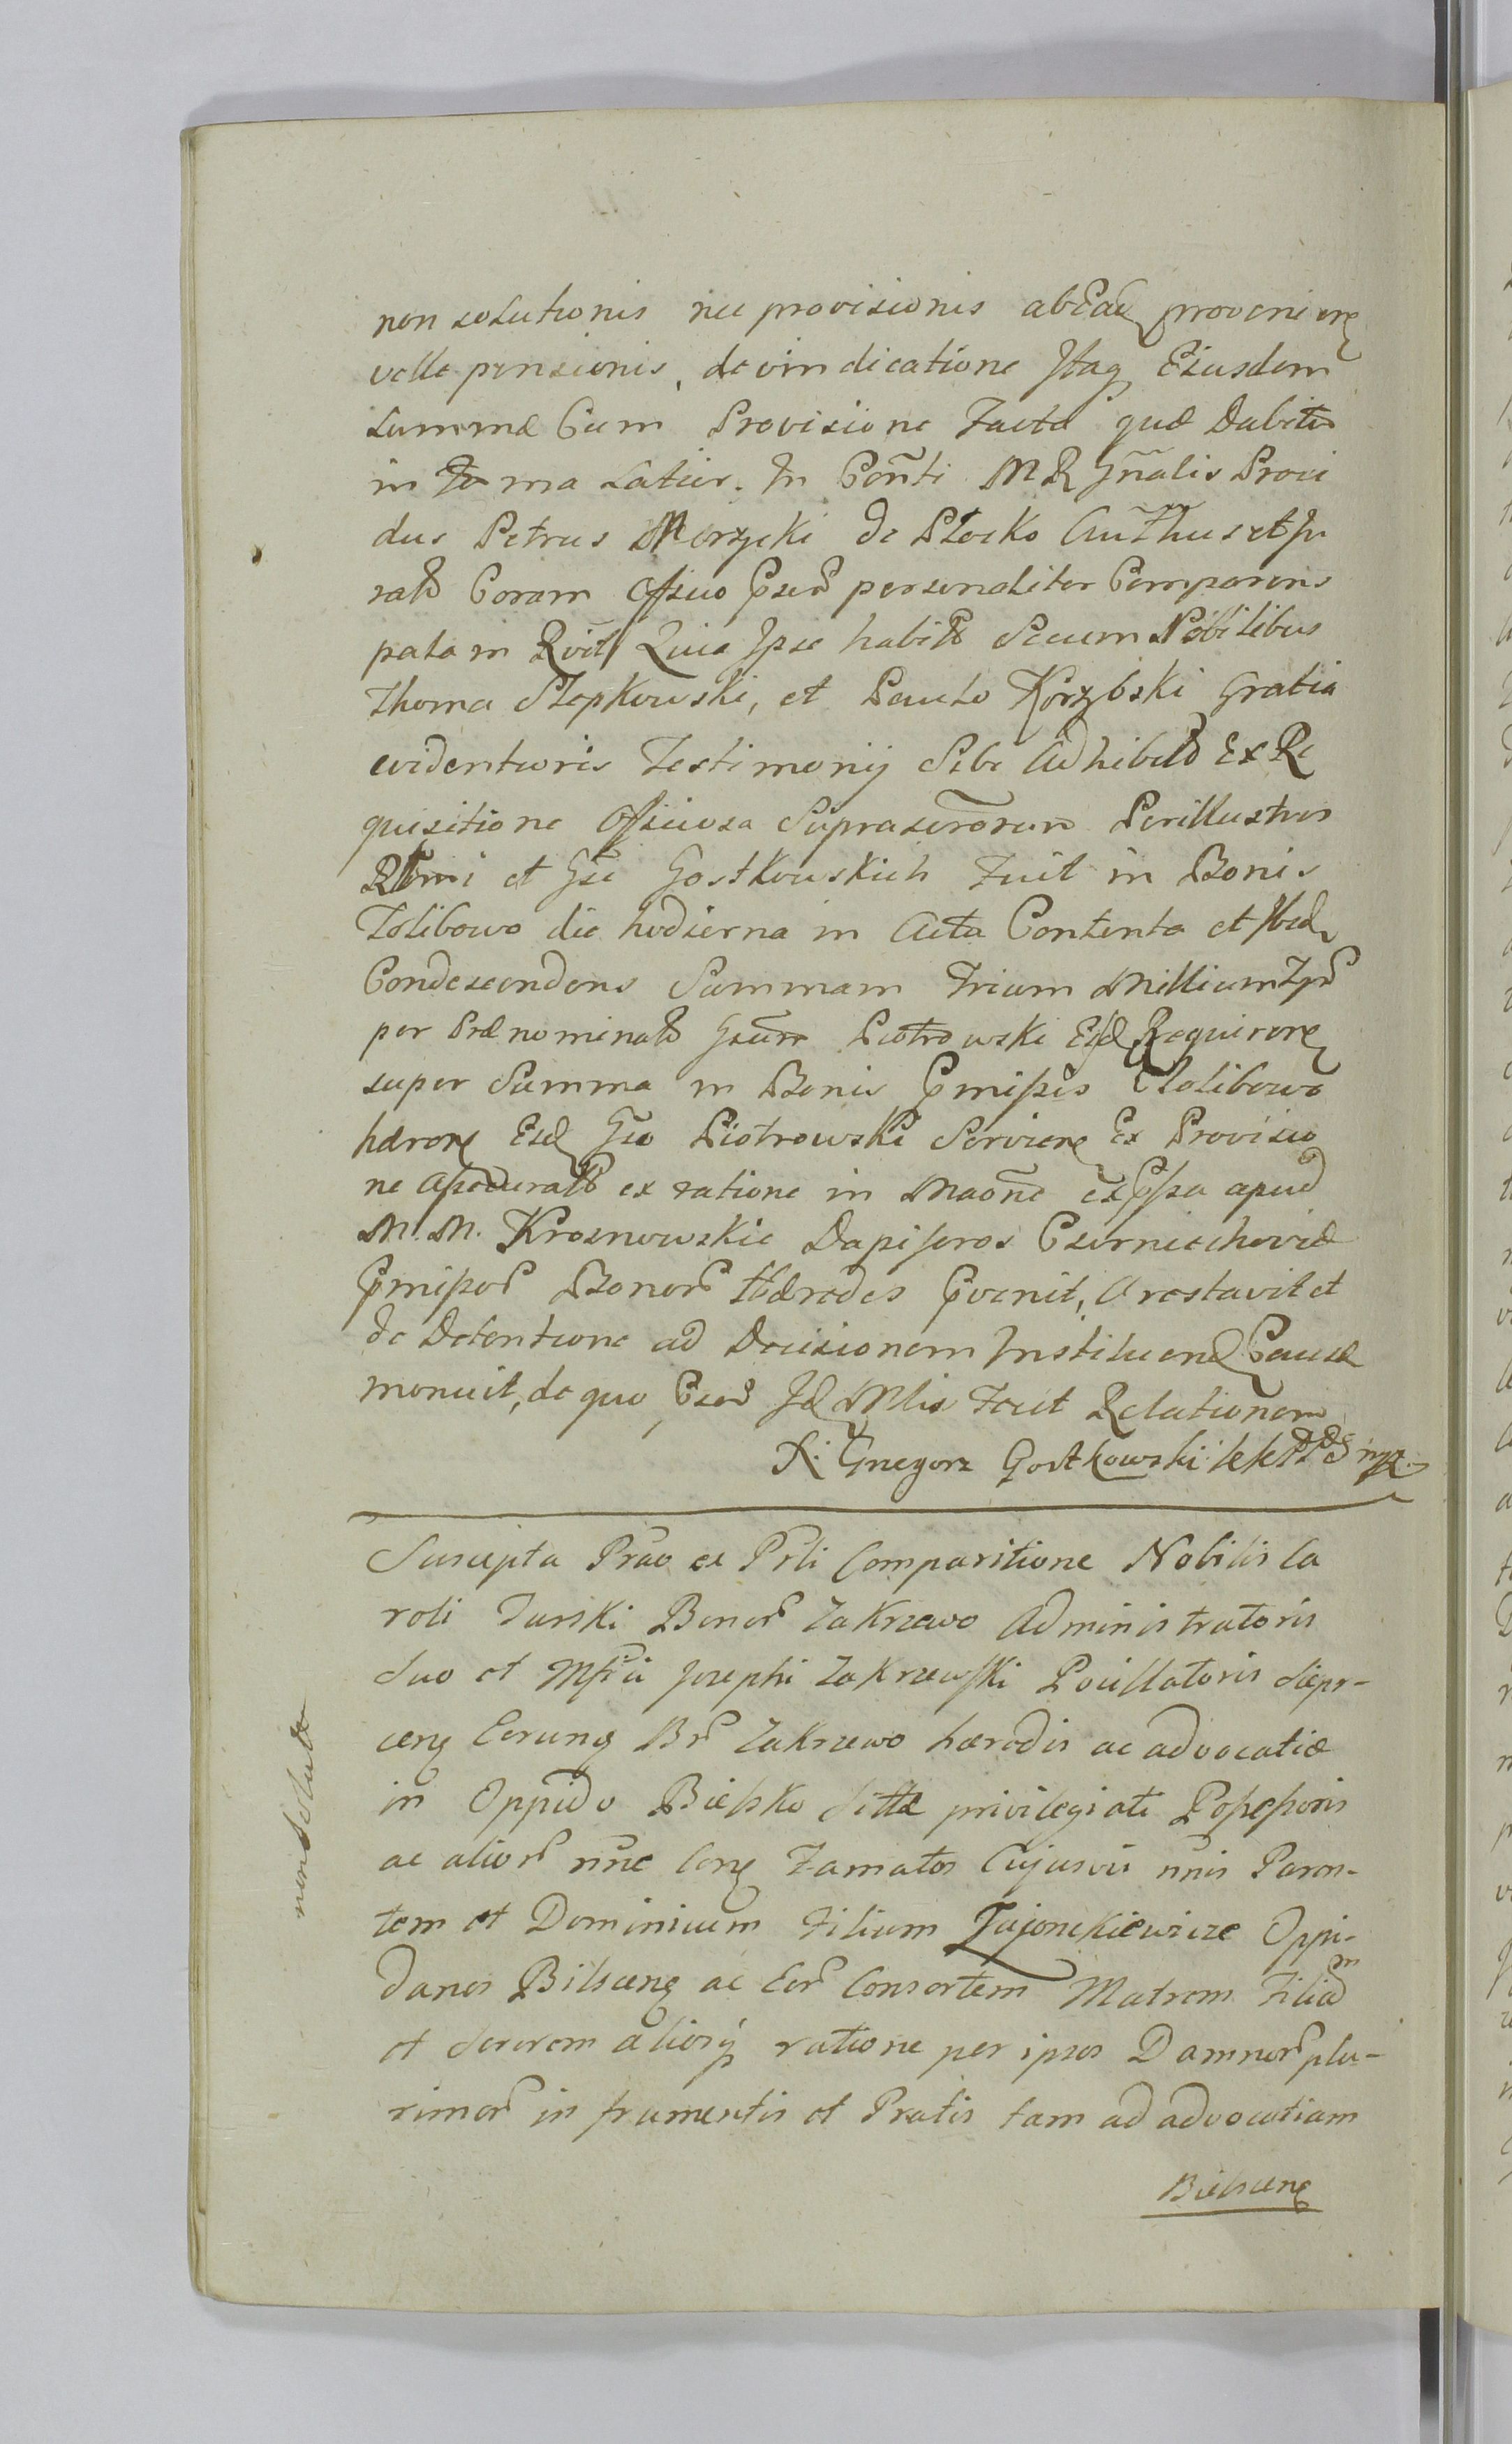 non solutionis nec provisionis ab Ead provenien
velle pensionis, de vindicatione Itaq Eiusdem
summæ Cum Provisione Facta quæ Dabit
in Forma Latior. In Conti M R Gnalis Provi
dus Petrus Morzycki de Płocko Authus et Ju
rato Coram Offcio Psen personaliter Comparens
palam Rvit Quia Ipse habitis Secum Nobilibus
Thoma Slepkowski, et Paulo Korzbski Gratia
evidentioris Testimonij Sibi Adhibitis Ex Re
quisitione Officiosa Suprascrorum Perillustris
Rdmi et Gsi Gostkowskich Fuit in Bonis
Tolibowo die hodierna in Acta Contenta et Ibid
Condescendens Summam Trium Millium Fp
per Prænominat Gsum Piotrowski Eisd Requiren
super Summa in Bonis Pmissis Tolibowo
hæren Eid Gso Piotrowski Servien Ex Provisio
ne Assecurato ex ratione in Maone expssa apud
M. M. Krosnowskie Dapiferos Czerniechoviæ
Pmissor Bonor Hæredes Pvenit, Arestavit et
de Detentione ad Decisionem Instituend Causæ
monuit, de quo Psen Id Mlis Fecit Relationem
X. Gregorz Gostkowski mp.
Suscepta Prao et Prli Comparitione Nobilis Ca
roli Turski Bonor Zakrzewo Administratoris
suo et Mfci Josephi Zakrzewski Pocillatoris Siepr-
cen Eorunq Br Zakrzewo hærdis ac advocatiæ
in Oppido Bielsko sittæ privilegiati Possessoris
ac alior nnc Con Famatos Cujusvis nnis Paren-
tem et Dominicum Filium Zajonckiewicze Oppi-
danos Bilscen ac Eor Consortem Matrem Filiam
et Sororem aliosq ratione per ipsos Damnor plu-
rimor in frumentis et Pratis tam ad advocatiam
Bielscen
non soluto